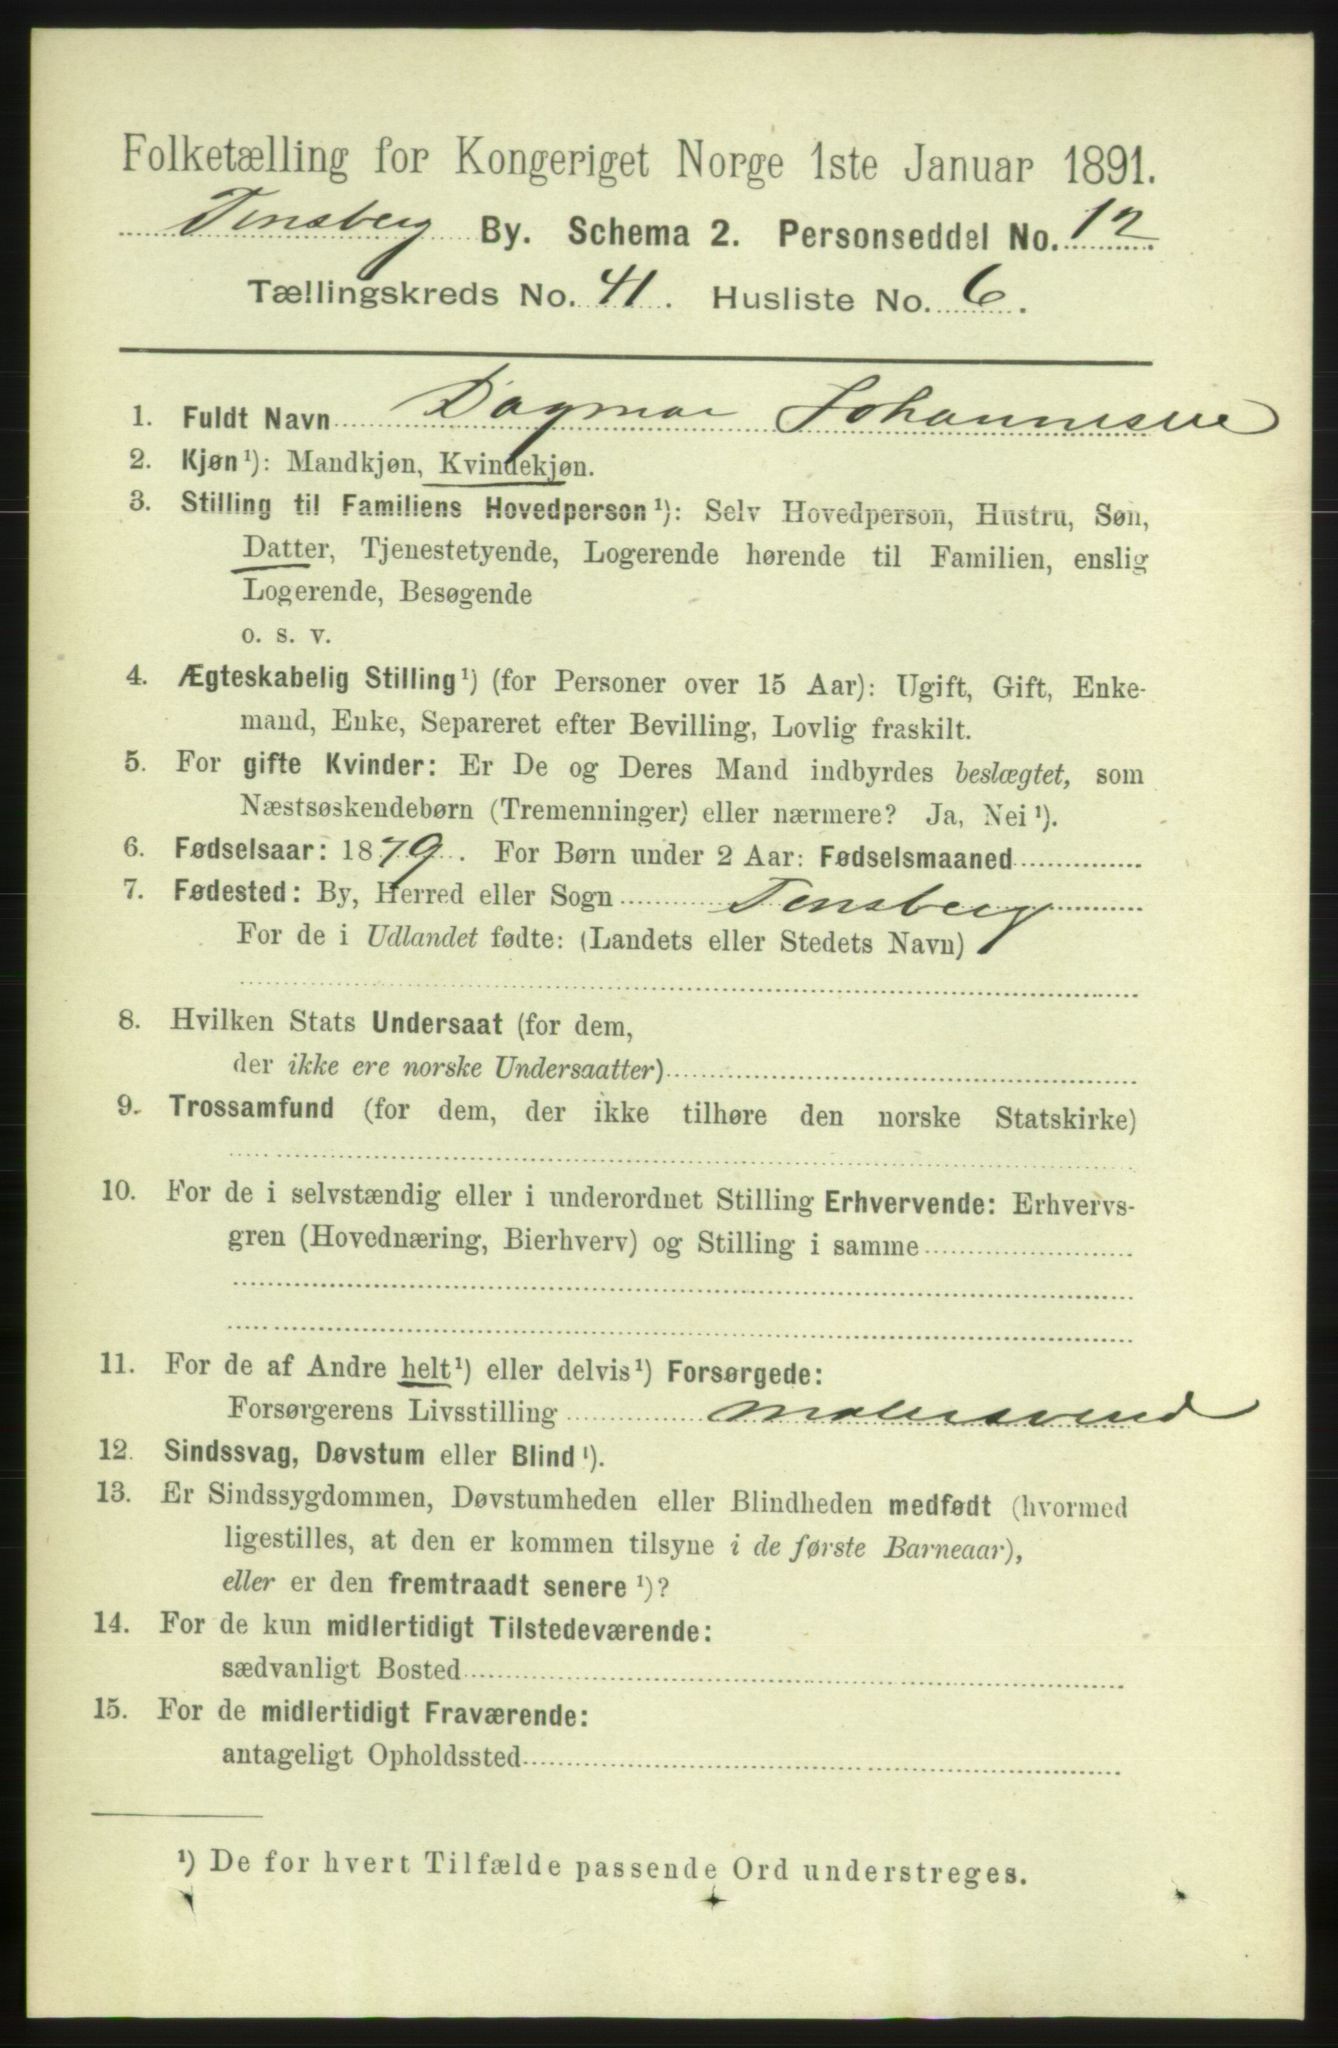 Folketælling for Kongeriget Norge 1ste Januar 1891.
Tønsberg By. Schema 2. Personseddel No. 12.
Tællingskreds No. 41. Husliste No. 6.
1. Fuldt Navn Dagmar Johannesen
2. Kjøn ¹): Mandkjøn, Kvindekjøn.
3. Stilling til Familiens Hovedperson ¹): Selv Hovedperson, Hustru, Søn,
Datter, Tjenestetyende, Logerende hørende til Familien, enslig
Logerende, Besøgende
o. s. v.
4. Ægteskabelig Stilling ¹) (for Personer over 15 Aar): Ugift, Gift, Enke-
mand, Enke, Separeret efter Bevilling, Lovlig fraskilt.
5. For gifte Kvinder: Er De og Deres Mand indbyrdes beslægtet, som
Næstsøskendebørn (Tremenninger) eller nærmere? Ja, Nei ¹).
6. Fødselsaar: 1879. For Børn under 2 Aar: Fødselsmaaned
7. Fødested: By, Herred eller Sogn Tønsberg
For de i Udlandet fødte: (Landets eller Stedets Navn)
8. Hvilken Stats Undersaat (for dem,
der ikke ere norske Undersaatter)
9. Trossamfund (for dem, der ikke tilhøre den norske Statskirke)
10. For de i selvstændig eller i underordnet Stilling Erhvervende: Erhvervs-
gren (Hovednæring, Bierhverv) og Stilling i samme
11. For de af Andre helt ¹) eller delvis ¹) Forsørgede:
Forsørgerens Livsstilling Malersvend
12. Sindssvag, Døvstum eller Blind ¹).
13. Er Sindssygdommen, Døvstumheden eller Blindheden medfødt (hvormed
ligestilles, at den er kommen tilsyne i de første Barneaar),
eller er den fremtraadt senere ¹)?
14. For de kun midlertidigt Tilstedeværende:
sædvanligt Bosted
15. For de midlertidigt Fraværende:
antageligt Opholdssted
¹) De for hvert Tilfælde passende Ord understreges.